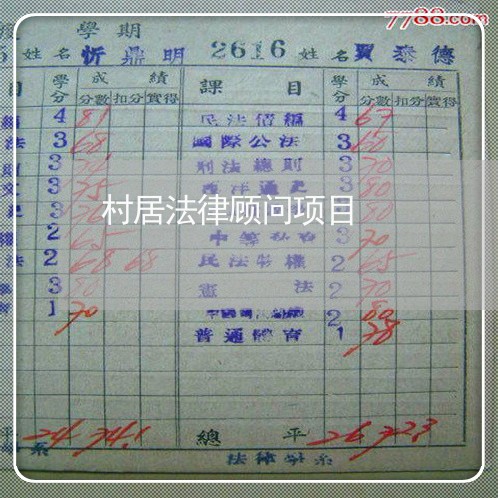 7788.com
學期
姓名 忻鼎明 2616 姓名 賈泰德
目 學分 成績 課目 學分 成績
分數 扣分 實得 分數 扣分 實得
4 81 民法債編 4 67
法 3 68 國際公法 3 60
3 刑法總則 3 70
3 75 西洋通史 3 80
村居法律顧问项目
2 65 3 70
法 2 68 68 民法物權 2 65
3 80 憲法 2 70
1 70 2 80
普通體育 1 78
平 24 74.1 總平 26 72.3
系 法律學系